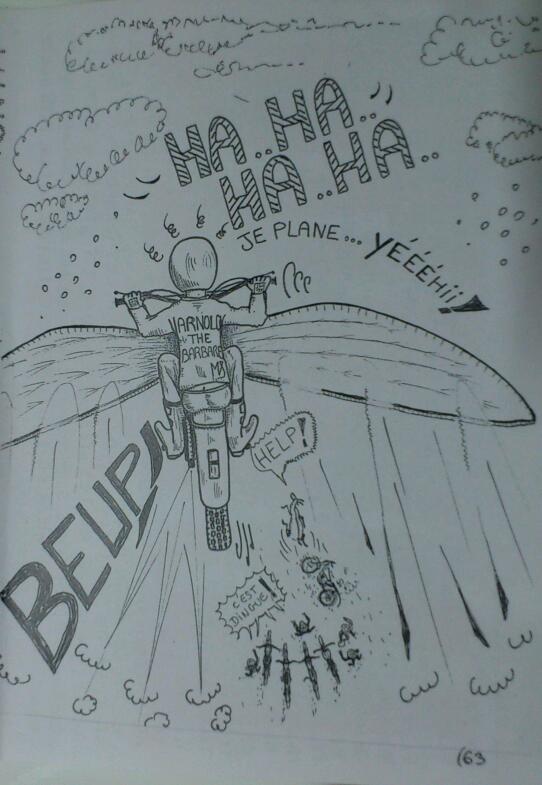 HA..HA..
HA..HA..
JE PLANE... YÉÉÉHii!
ARNOLD
THE
BARBARE
BEUP!
HELP!
C'EST
DINGUE!
(63